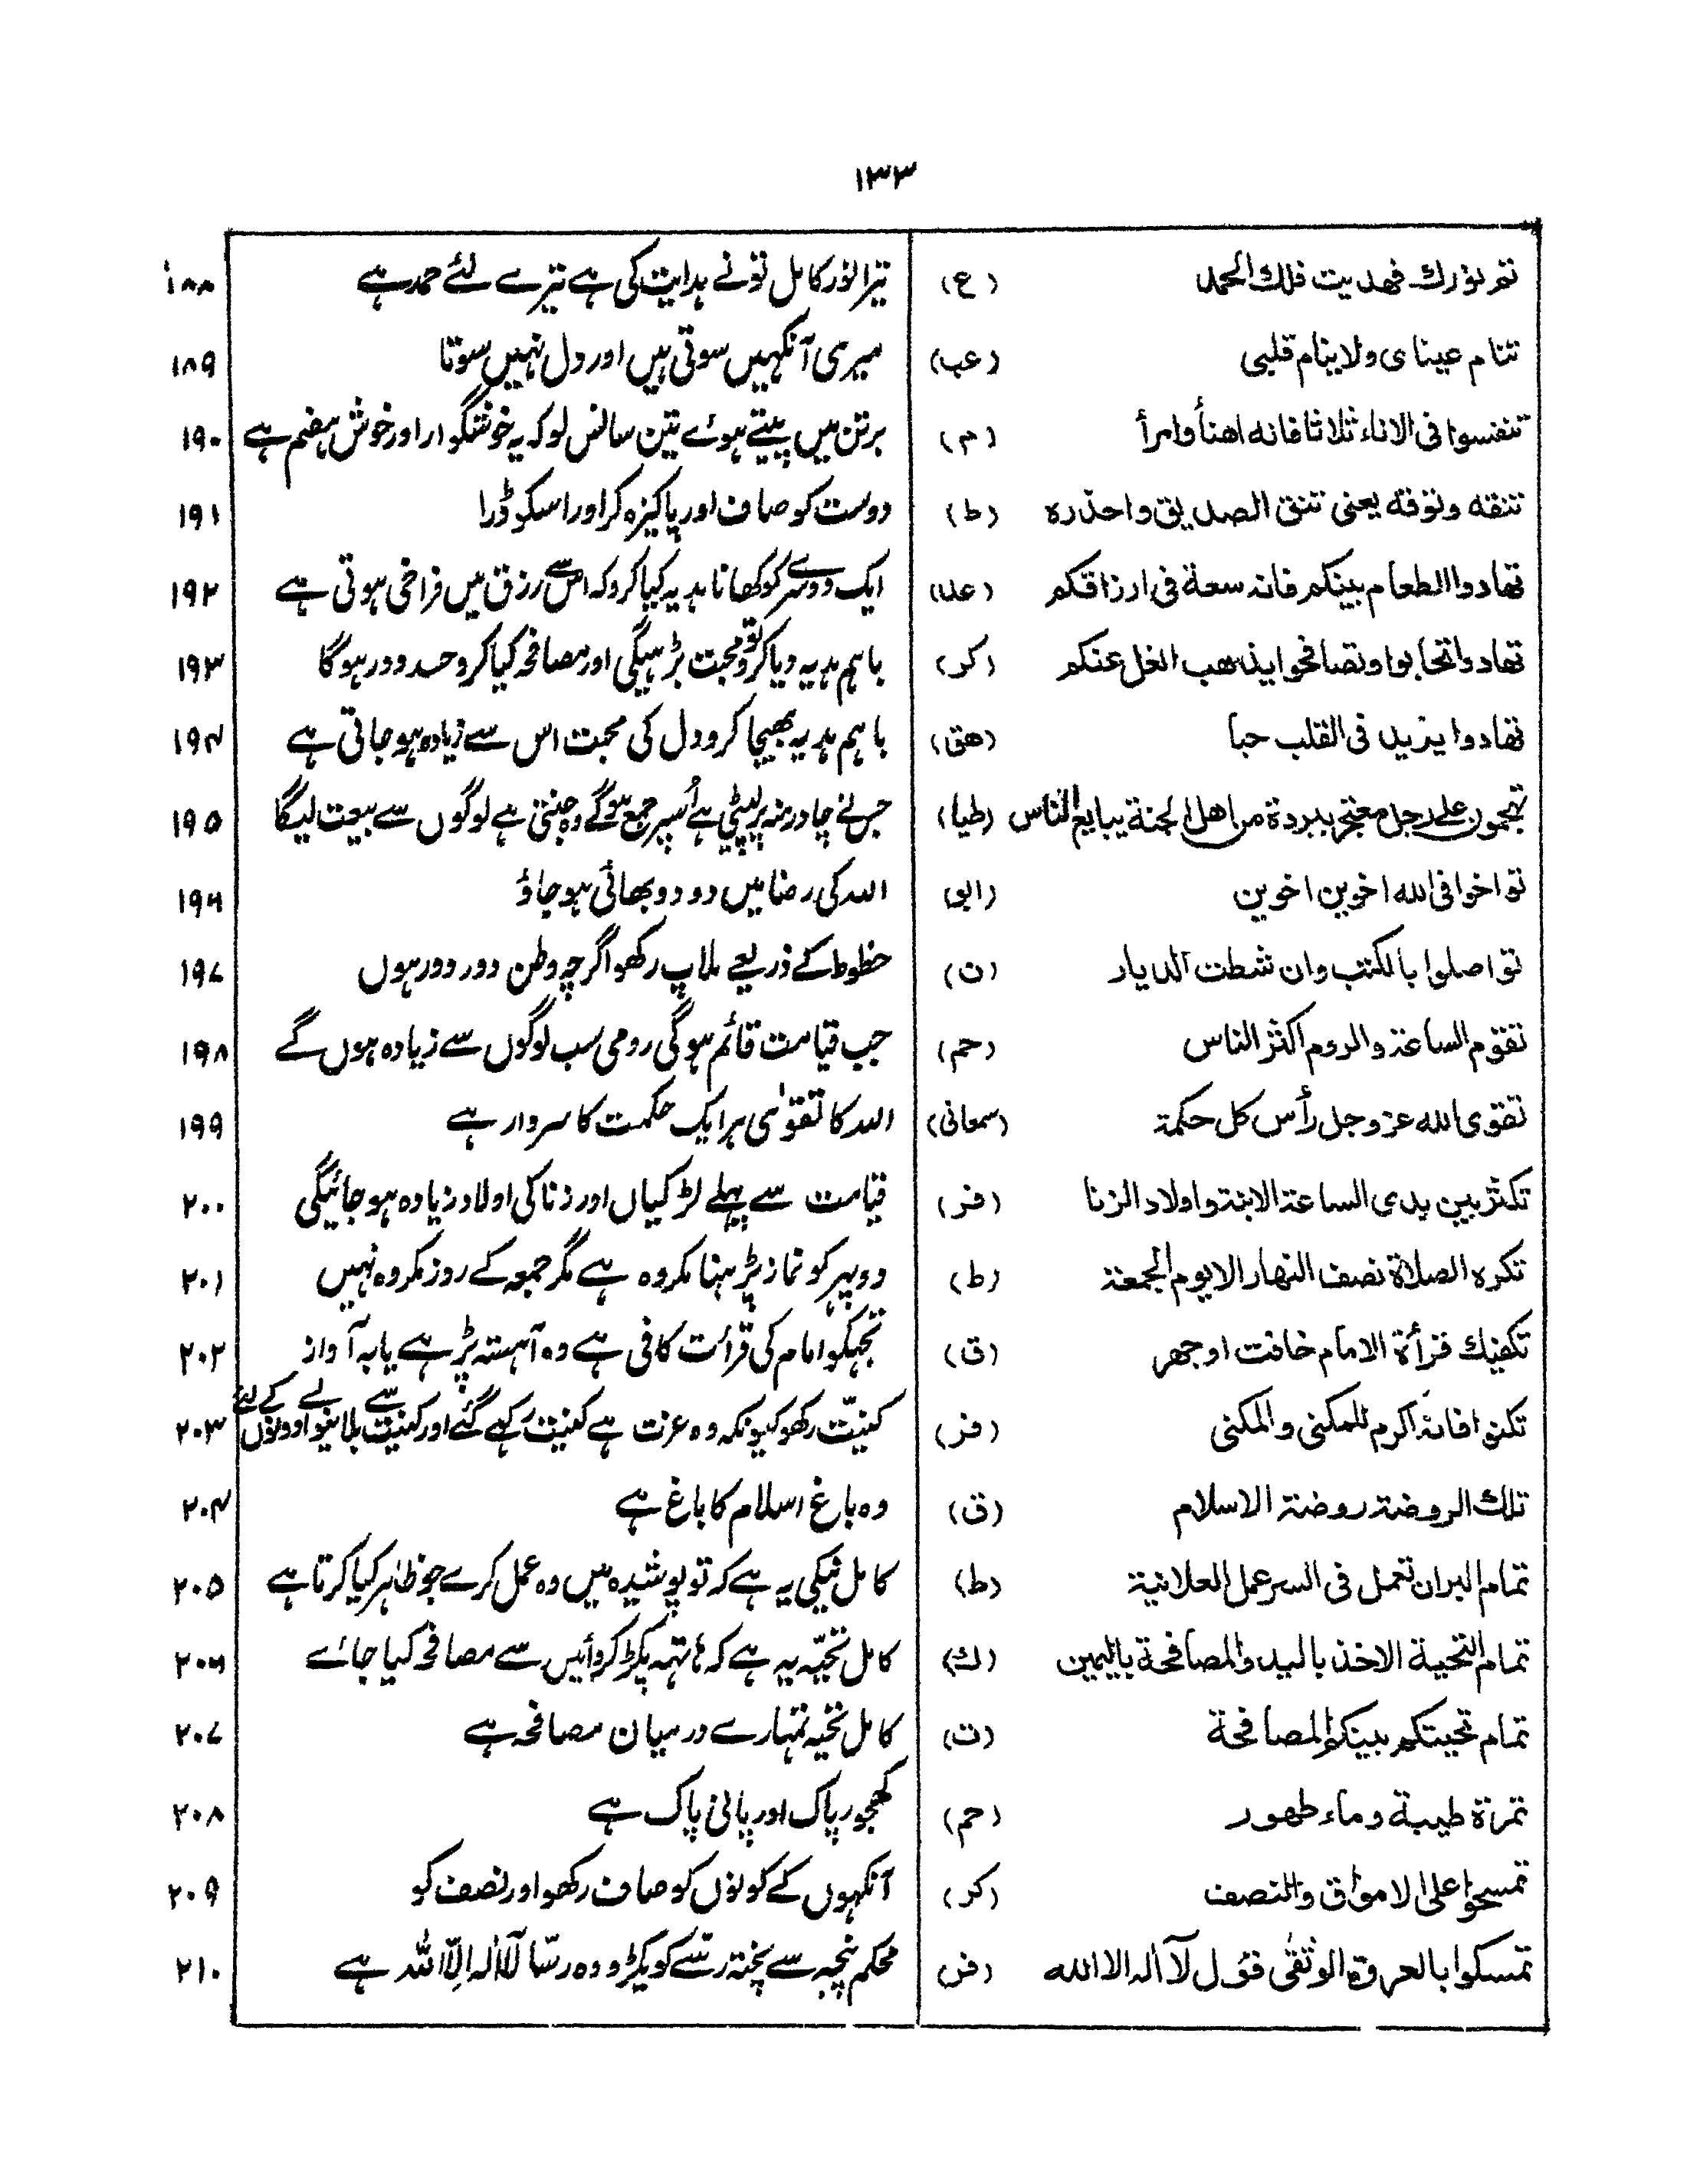 ۱۳۳
تم نورك فهديت فلك الحمد (ع) تیرا نور کامل تونے ہدایت کی ہے تیرے لئے حمد ہے ۱۸۸
تنام عيناى ولا ينام قلبى (عب) میری آنکہیں سوتی ہیں اور دل نہیں سوتا ۱۸۹
تنفسوا فى الاناء ثلاثا فانه اهنأ وامرأ (م) برتن میں پیتے ہوئے تین سانس لو کہ یہ خوشگوار اور خوش ہضم ہے ۱۹۰
تنقه وتوقه يعنى تنق الصديق واحذره (ط) دوست کو صاف اور پاکیزہ کر اور اسکو ڈرا ۱۹۱
تهادوا الطعام بينكم فانه سعة فى ارزاقكم (علا) ایک دوسرے کو کھانا ہدیہ کیا کرو کہ اس سے رزق میں فراخی ہوتی ہے ۱۹۲
تهادوا تحابوا وتصافحوا يذهب الغل عنكم (كر) باہم ہدیہ دیا کرو تو محبت بڑہیگی اور مصافحہ کیا کرو حسد دور ہوگا ۱۹۳
تهادوا يزيد فى القلب حبا (هق) باہم ہدیہ بھیجا کرو دل کی محبت اس سے زیادہ ہوجاتی ہے ۱۹۴
تهجمون على رجل معتجر ببردة من اهل الجنة يبايع الناس (طيا) جس نے چادر منہ پر لپیٹی ہے اُسپر جمع ہوگے وہ جنتی ہے لوگوں سے بیعت لیگا ۱۹۵
تواخوا فى الله اخوين اخوين (ابو) اللہ کی رضا میں دو دو بھائی ہوجاؤ ۱۹۶
تواصلوا بالكتب وان شطت الديار (ن) خطوط کے ذریعے ملاپ رکھو اگرچہ وطن دور دور ہوں ۱۹۷
تقوم الساعة والروم اكثر الناس (حم) جب قیامت قائم ہوگی رومی سب لوگوں سے زیادہ ہوں گے ۱۹۸
تقوى الله عز وجل رأس كل حكمة (سمعانى) اللہ کا تقوٰی ہر ایک حکمت کا سردار ہے ۱۹۹
تكثر بين يدى الساعة الابنة واولاد الزنا (فر) قیامت سے پہلے لڑکیاں اور زنا کی اولاد زیادہ ہوجائیگی ۲۰۰
تكره الصلاة نصف النهار الا يوم الجمعة (ط) دوپہر کو نماز پڑہنا مکروہ ہے مگر جمعہ کے روز مکروہ نہیں ۲۰۱
تكفيك قرأة الامام خافت اوجهر (ق) تجہکو امام کی قرأت کافی ہے وہ آہستہ پڑہے یا بہ آواز ۲۰۲
تكنوا فانه اكرم للمكنى والمكنى (فر) کنیّت رکھو کیونکہ وہ عزت ہے کنیت رکہے گئے اور کنیت سے بلانیوالے دونوں کے لئے ۲۰۳
تلك الروضة روضة الاسلام (ق) وہ باغ اسلام کا باغ ہے ۲۰۴
تمام البر ان تعمل فى السر عمل العلانية (ط) کامل نیکی یہ ہے کہ تو پوشیدہ میں وہ عمل کرے جو ظاہر کیا کرتا ہے ۲۰۵
تمام التحية الاخذ باليد والمصافحة باليمين (ك) کامل تحیّہ یہ ہے کہ ہاتہہ پکڑ کر دائیں سے مصافحہ کیا جائے ۲۰۶
تمام تحيتكم بينكم المصافحة (ت) کامل تحیہ تمہارے درمیان مصافحہ ہے ۲۰۷
تمرة طيبة وماء طهور (حم) کھجور پاک اور پانی پاک ہے ۲۰۸
تمسحوا على الامواق والنصف (كر) آنکہوں کے کونوں کو صاف رکھو اور نصف کو ۲۰۹
تمسكوا بالعروة الوثقى قول لآ اله الا الله (فر) محکم پنجہ سے پختہ رسّے کو پکڑو وہ رسّا لآ الٰہ الّا اللّٰہ ہے ۲۱۰